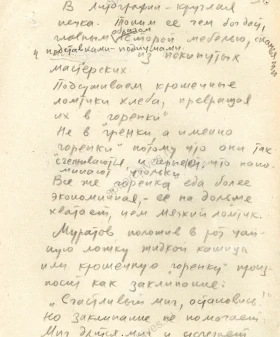 В литографии - круглая
печка. Топим ее чем попало,
главным образом старой мебелью,
и подставками-подиумами
из покинутых
мастерских
Подсушиваем крошечные
ломтики хлеба, превращая
их в "горенки"
Не в "гренки", а именно
"горенки" потому что они так
и что напо-
минают угольки.
Все же горенка еда более
экономичная, - ее на дольше
хватает, чем мягкий ломтик.
Муратов положив в рот чай-
ную ложку жидкой кашицы
или крошечную горенку произ-
носит как заклинание:
"Счастливый миг, остановись!"
Но заклинание не помогает.
Миг длится миг и исчезает